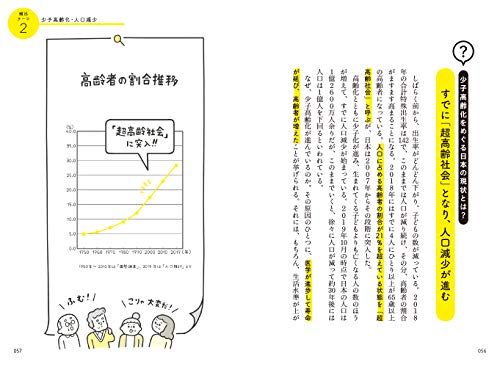 ?
少子高齢化をめぐる日本の現状とは?
すでに「超高齢社会」となり、人口減少が進む
しばらく前から、出生率がどんどん下がり、子どもの数が減っている。2018
年の合計特殊出生率は1.42で、このままでは人口が減り続け、その分、高齢者の割合
がますます高まることになる。2018年にはすでに4人にひとり以上が65歳以上
の高齢者になっている。人口に占める高齢者の割合が21%を超えている状態を「超
高齢社会」と呼ぶが、日本は2007年からその段階に突入した。
高齢化とともに少子化が進み、生まれてくる子どもよりも亡くなる人の数のほう
が増えて、すでに人口減少が始まっている。2019年10月の時点で日本の人口は
1億2600万人余りだが、このままでいくと、徐々に人口が減って約30年後には
人口は1億人を下回るといわれている。
なぜ、少子高齢化が進んでいるのか。その原因のひとつに、医学が進歩して寿命
が延び、高齢者が増えたことが挙げられる。それには、もちろん、生活水準が上が
056
頻出
テーマ
2
少子高齢化・人口減少
高齢者の割合推移
「超高齢社会」
に突入!!
(%)
35.0
30.0
25.0
20.0
15.0
10.0
5.0
0
1950 1960 1970 1980 1990 2000 2010 2017 (年)
ふむ!
こりゃ大変だ!
057